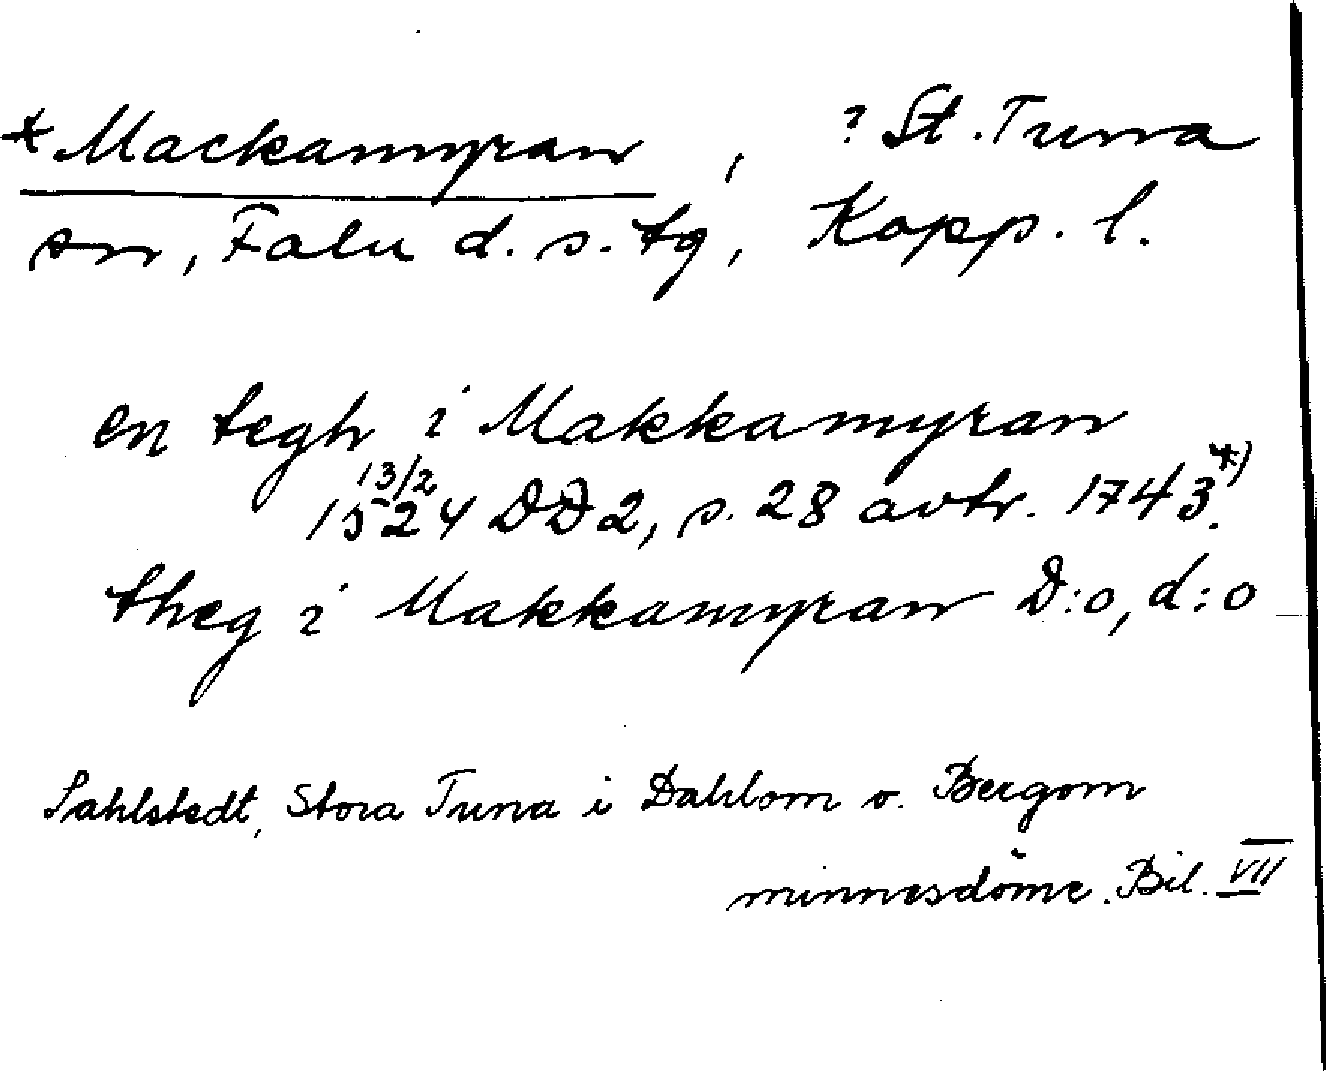 *Mackamyran, ? St. Tuna
sn, Falu d. s. tg, Kopp. l.
en tegh i Makkamyran
13/2
1524 DD2, s. 28 avtr. 1743.*)
theg i Makkamyran D:o, d:o
Sahlstedt, Stora Tuna i Dahlom o. Bergom
minnesdöme. Bil. VII